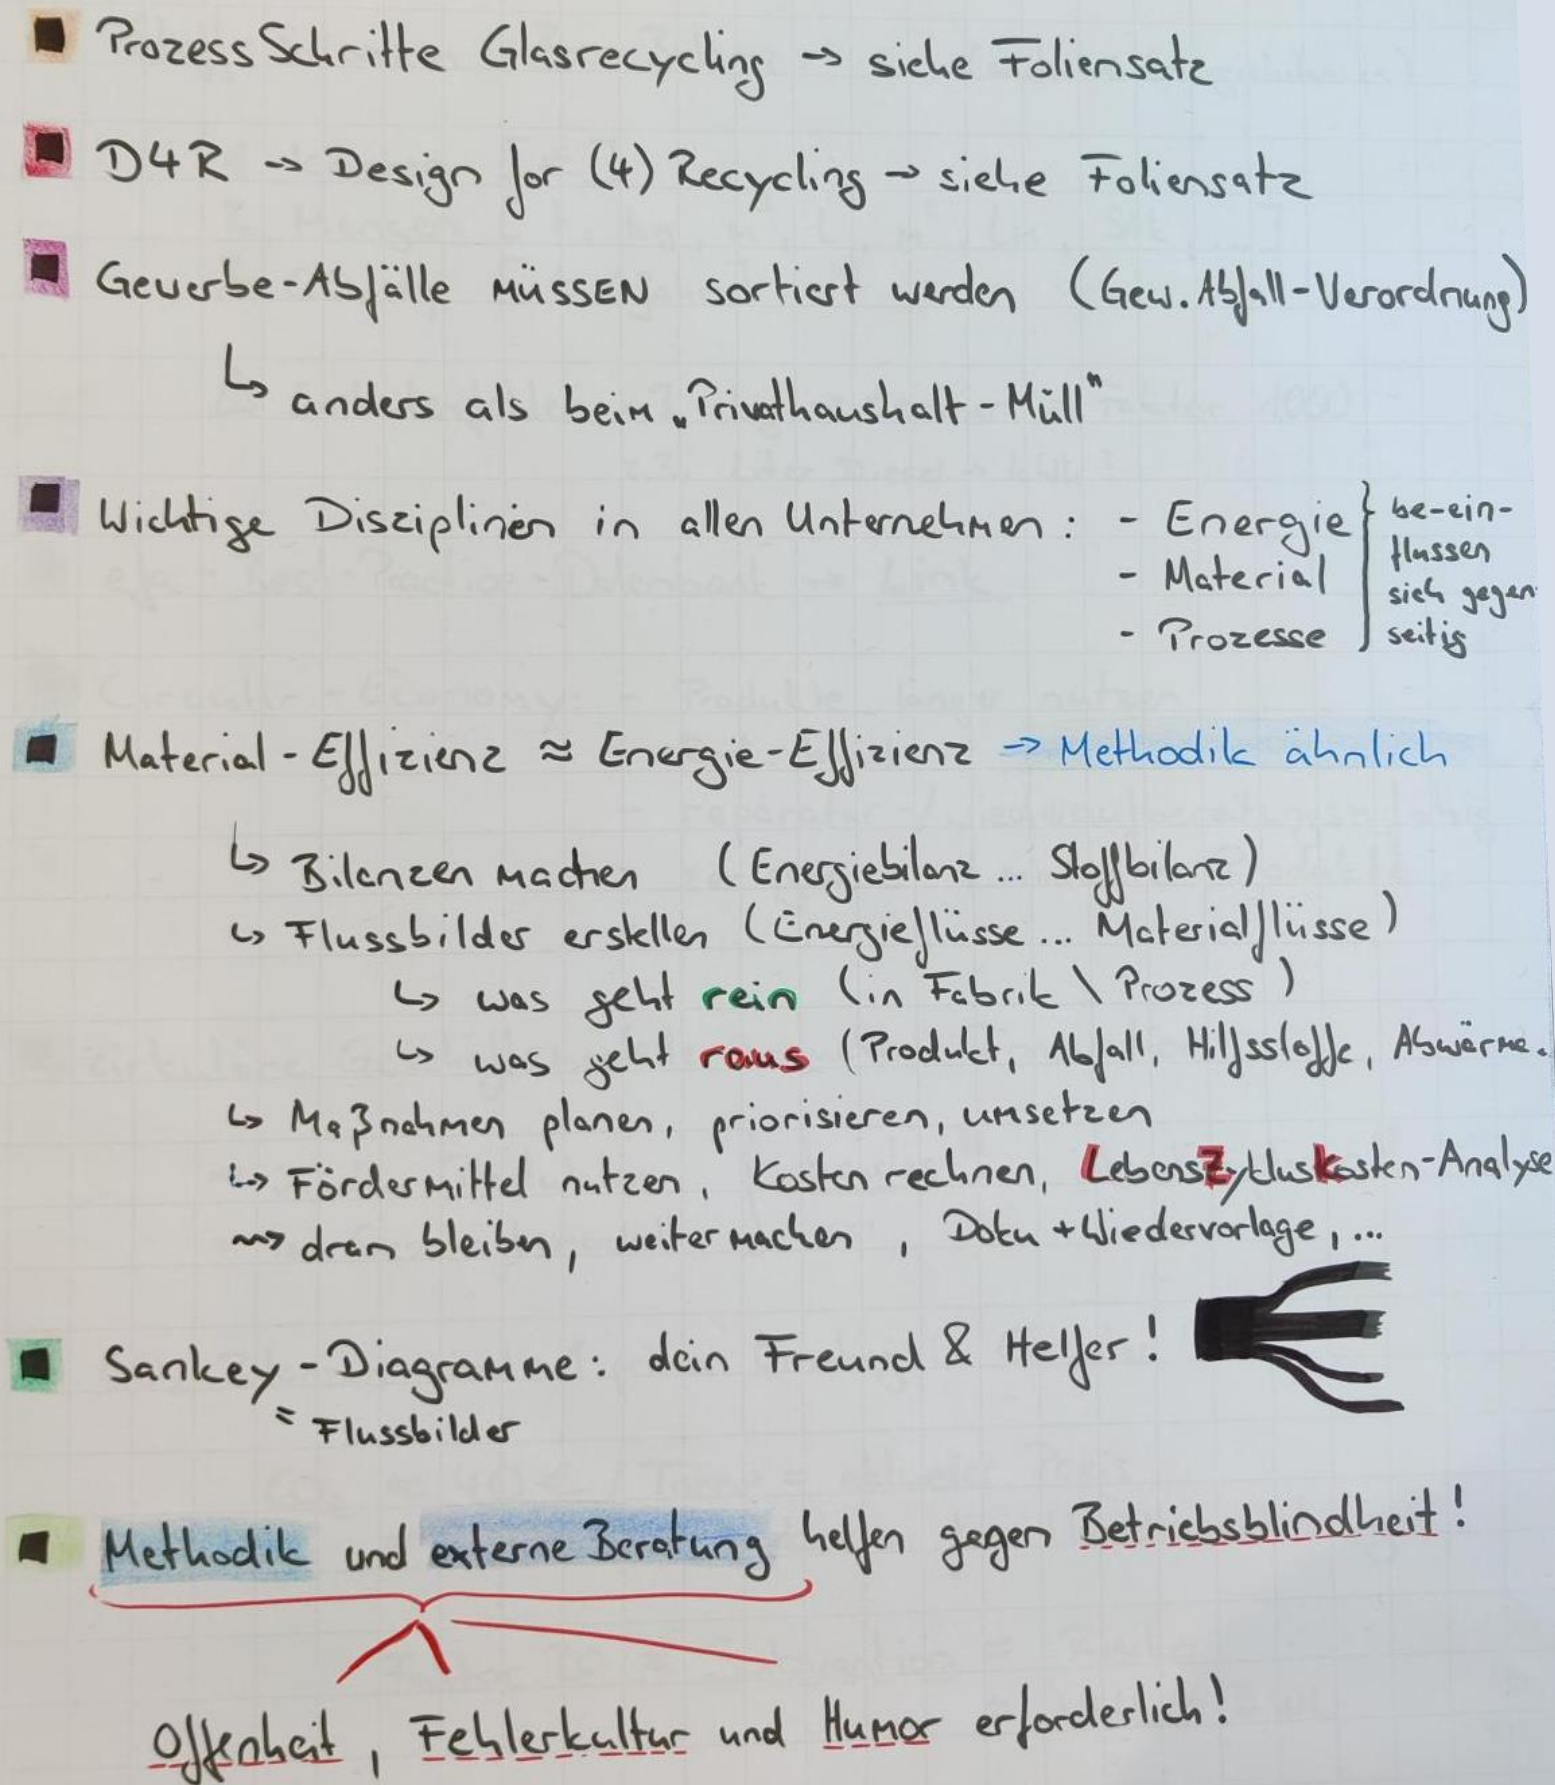 ■ ProzessSchritte Glasrecycling → siehe Foliensatz
■ D4R → Design for (4) Recycling → siehe Foliensatz
■ Gewerbe-Abfälle MÜSSEN sortiert werden (Gew. Abfall-Verordnung)
↳ anders als beim „Privathaushalt-Müll"
■ Wichtige Disziplinen in allen Unternehmen: - Energie } be-ein-
flussen
- Material
sich gegen
- Prozesse
seitig
■ Material-Effizienz ≈ Energie-Effizienz → Methodik ähnlich
↳ Bilanzen machen (Energiebilanz ... Stoffbilanz)
↳ Flussbilder erstellen (Energieflüsse ... Materialflüsse)
↳ was geht rein (in Fabrik \ Prozess)
↳ was geht raus (Produkt, Abfall, Hilfsstoffe, Abwärme.
↳ Maßnahmen planen, priorisieren, umsetzen
↳ Fördermittel nutzen, Kosten rechnen, LebensZykluskosten-Analyse
⇝ dran bleiben, weiter machen, Doku + Wiedervorlage, ...
■ Sankey-Diagramme: dein Freund & Helfer!
= Flussbilder
■ Methodik und externe Beratung helfen gegen Betriebsblindheit!
Offenheit, Fehlerkultur und Humor erforderlich!